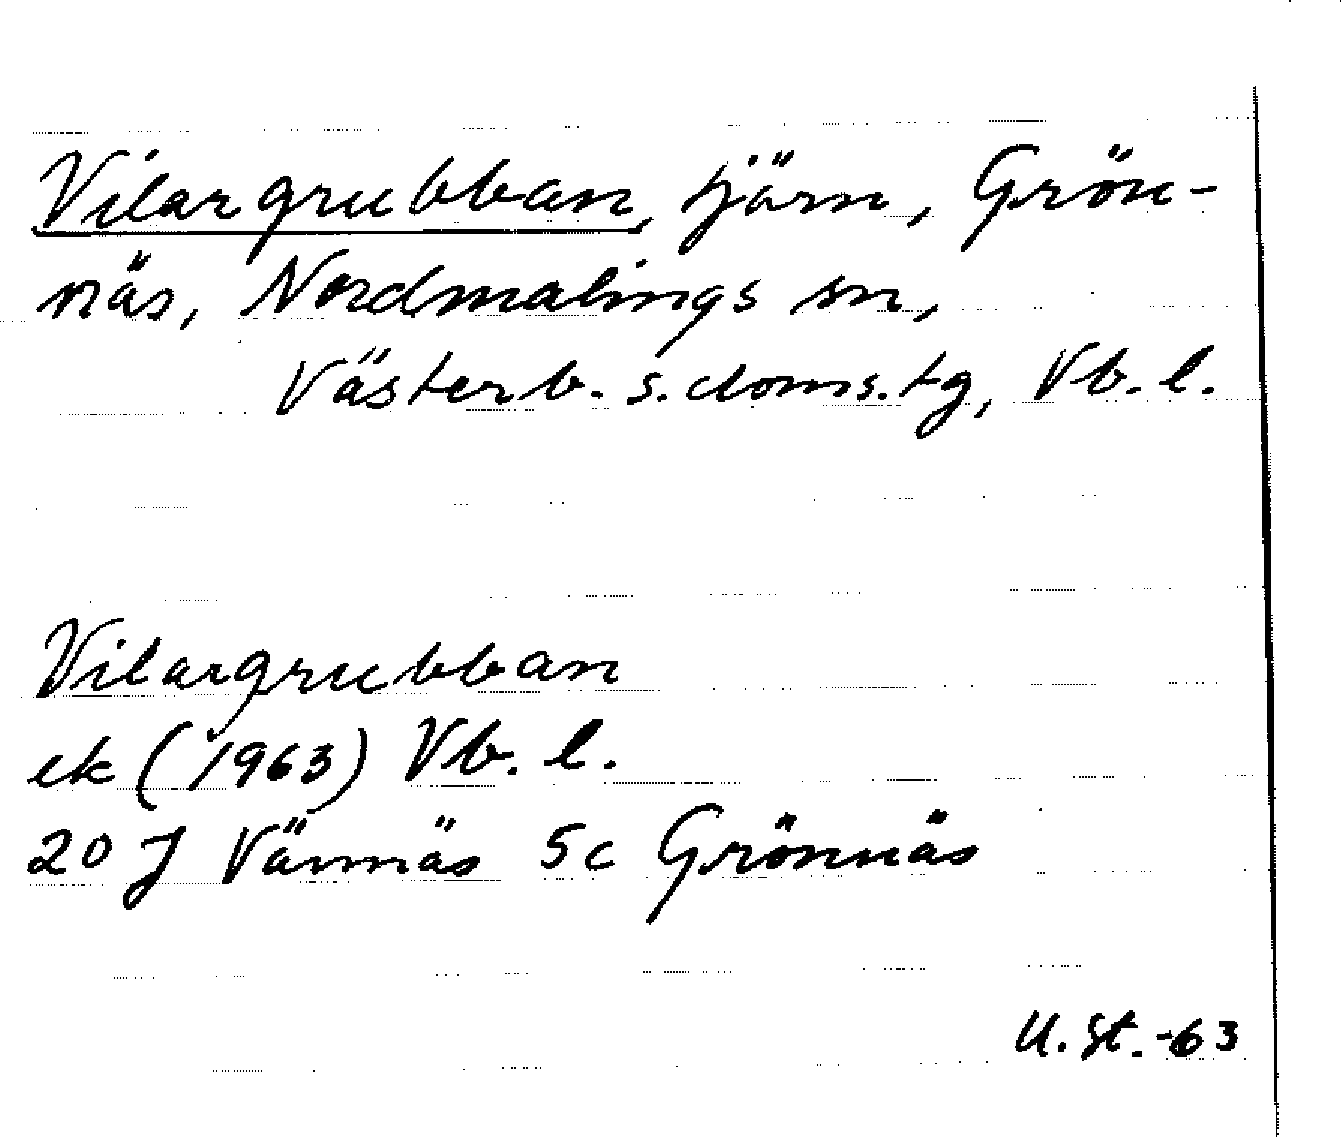 Vilargrubban, tjärn, Grön-
näs, Nordmalings sn,
Västerb. s. doms. tg, Vb. l.
Vilargrubban
ek (1963) Vb. l.
20 J Vännäs 5c Grönnäs
U. St. -63